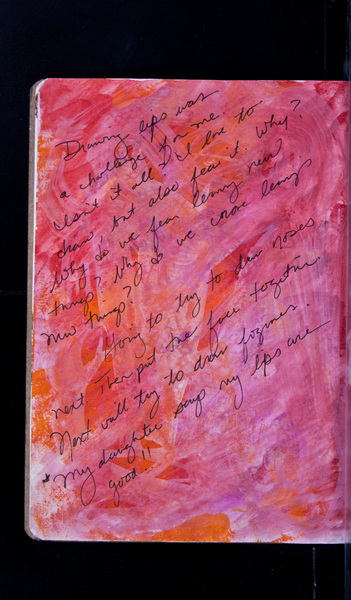 Drawing lips was
a challenge for me.
Isn't it all? I love to
draw but also fear it. Why?
Why do we fear learning new
things? Why do we crave learning
new things?
Going to try to draw noses
next. Then put the face together.
Next will try to draw figures.
* My daughter says my lips are
good!!